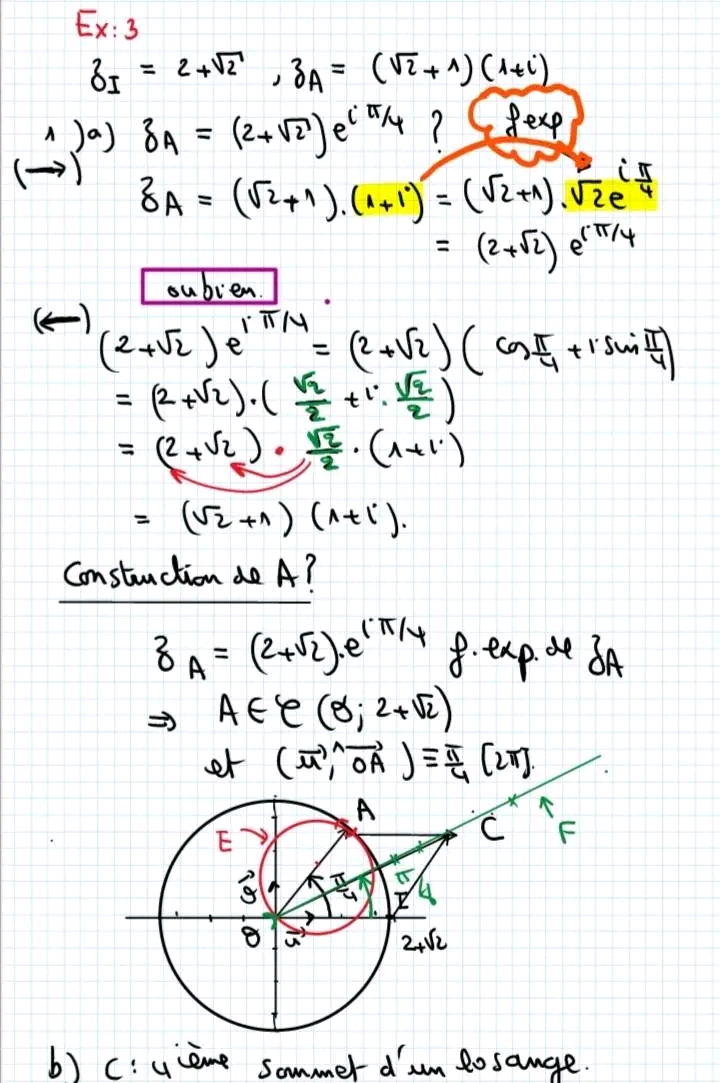 Ex: 3
𝔷_I = 2+√2 , 𝔷_A = (√2+1)(1+i)
1)a) 𝔷_A = (2+√2)e^{iπ/4} ? f exp
(→)
𝔷_A = (√2+1).(1+i) = (√2+1).√2e^{iπ/4}
= (2+√2) e^{iπ/4}
oubien.
(←) (2+√2)e^{iπ/4} = (2+√2)(cos π/4 + i sin π/4)
= (2+√2).(√2/2 + i.√2/2)
= (2+√2) . √2/2 . (1+i)
= (√2+1)(1+i).
Construction de A?
𝔷_A = (2+√2).e^{iπ/4} f. exp. de 𝔷_A
⇒ A ∈ 𝒞(O; 2+√2)
et (u⃗, OA⃗) ≡ π/4 [2π].
A
E → C
F
v⃗ π/4 π/8 I
O u⃗ 2+√2
b) C: 4ième sommet d'un losange.